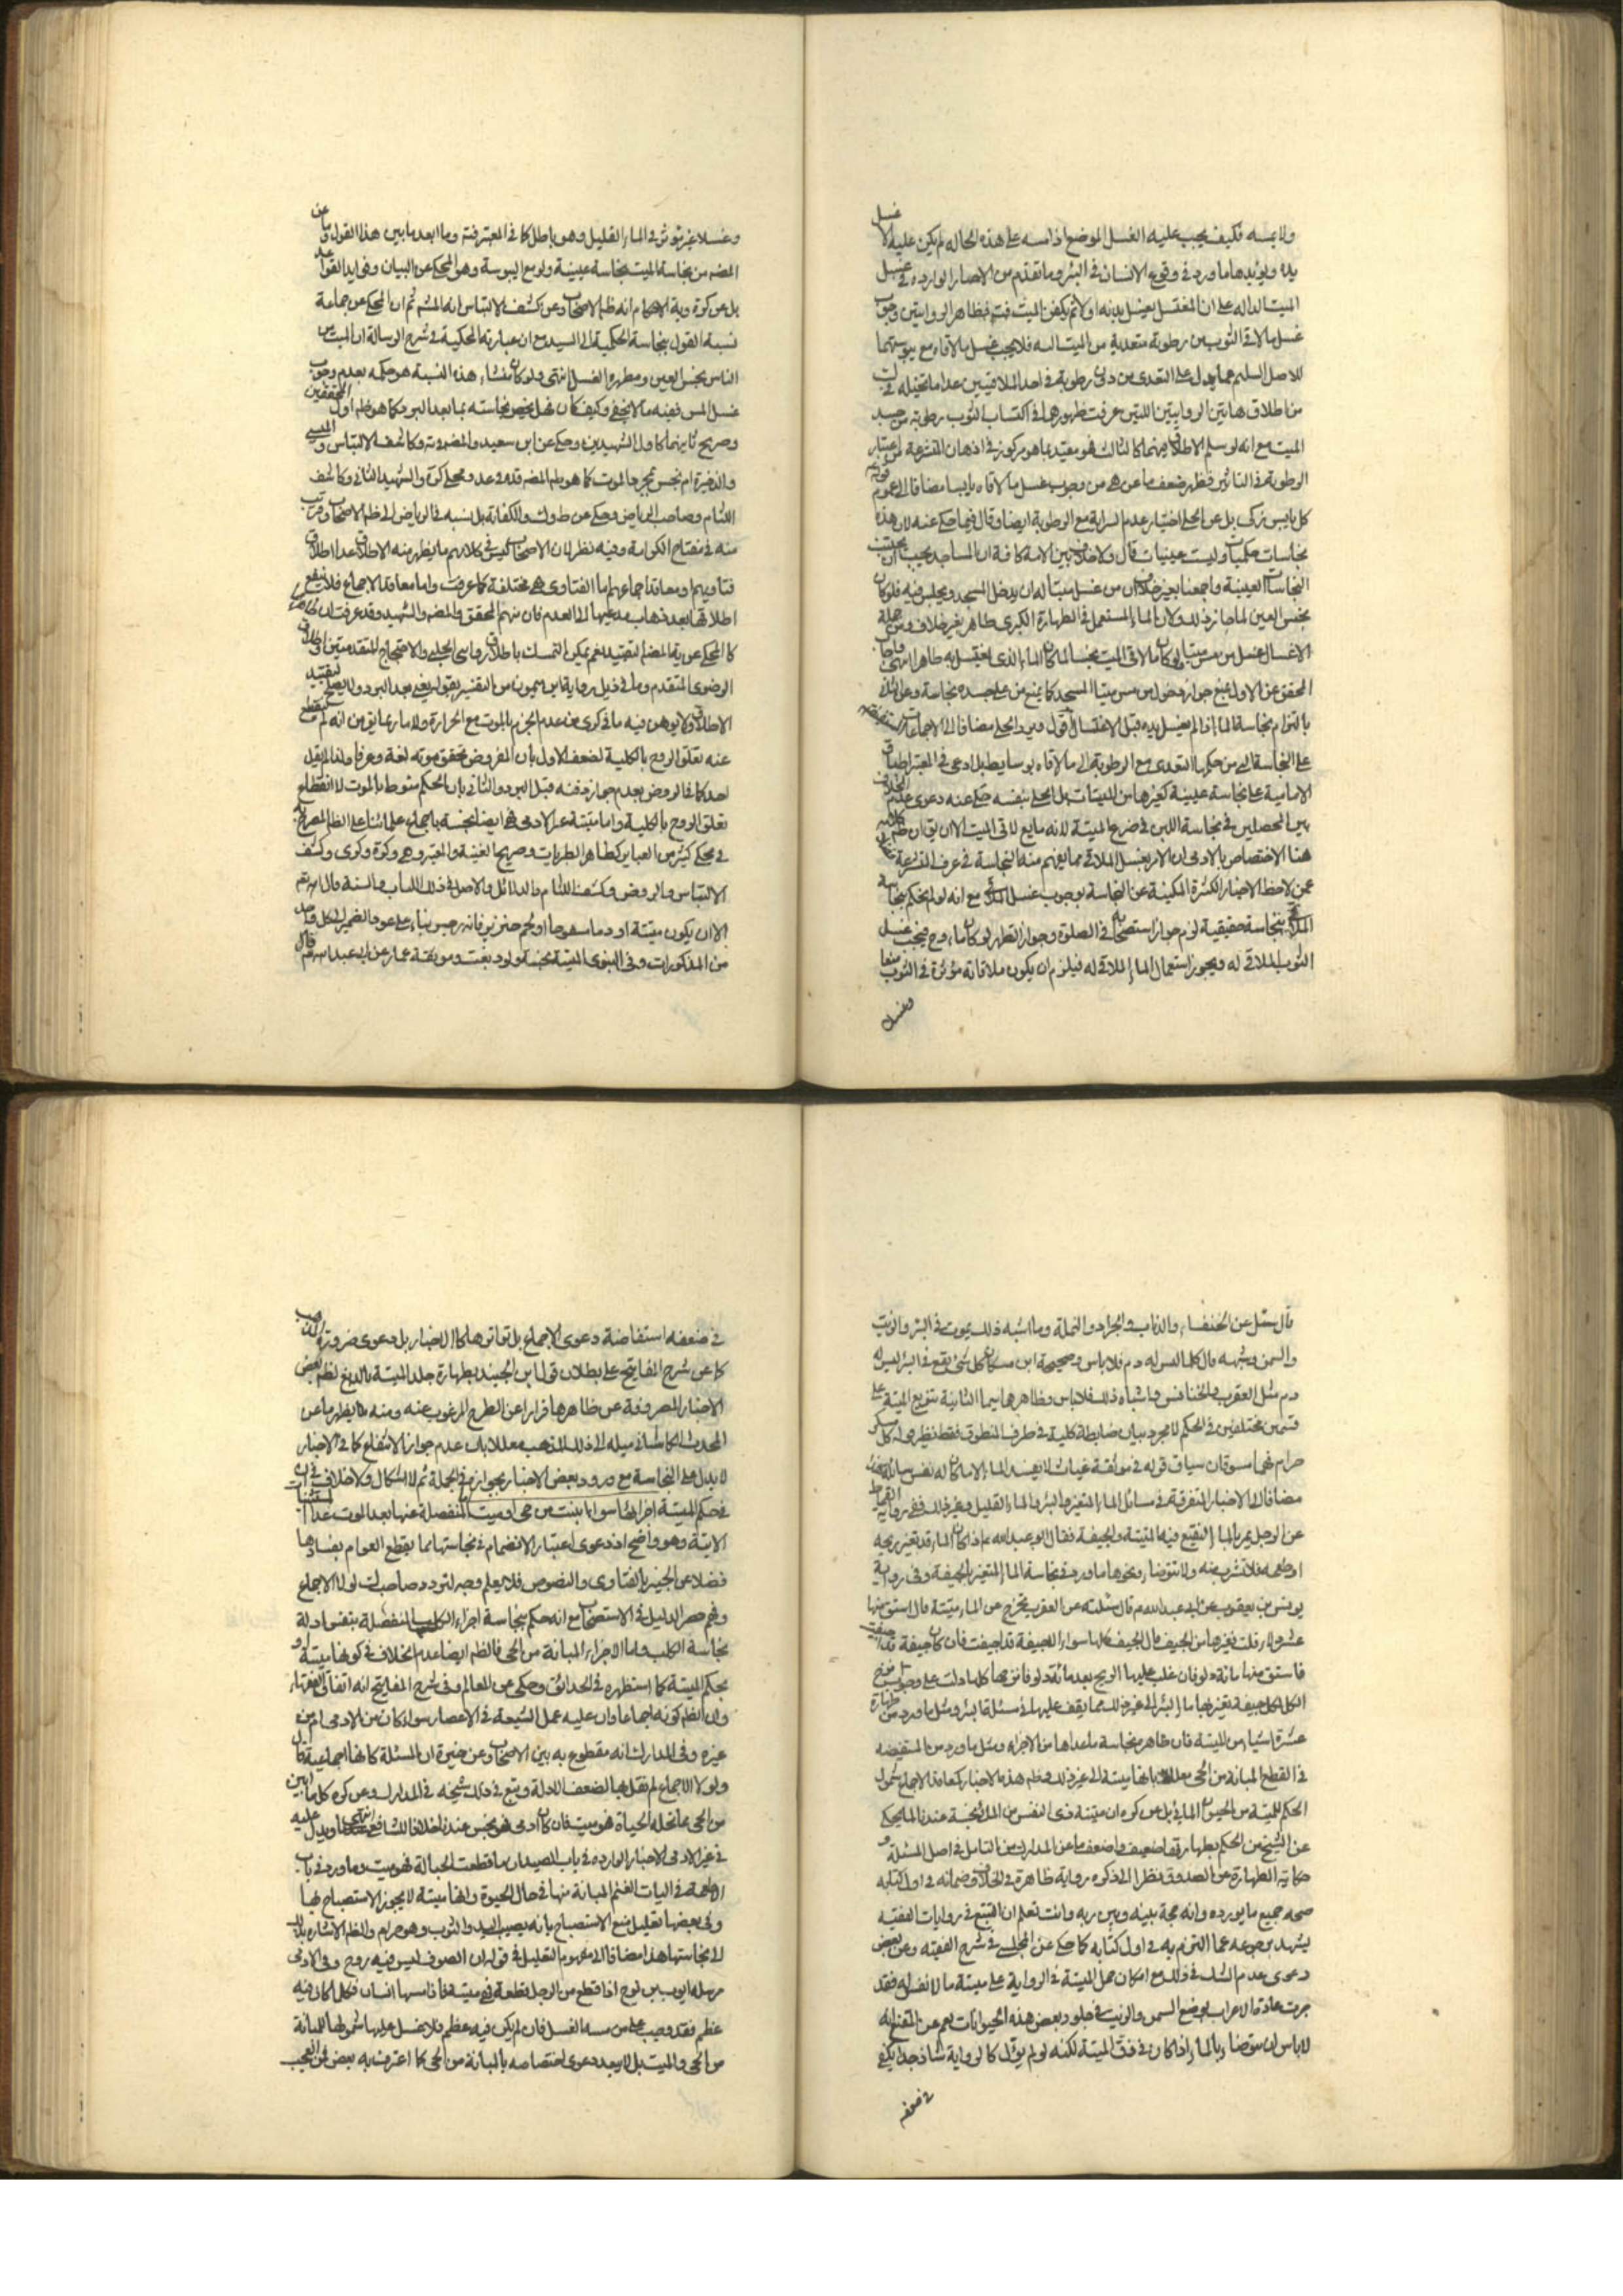 ولا يمسه فكيف يجب عليه الغسل الموضع اذا مسه على هذه الحاله لم يكن عليه الا غسل
يده ويؤيدها ما ورد في وقوع الانسان في البئر وما تقدم من الاخبار الوارده في غسل
الميت الداله على ان المغتسل يغسل يديه اولا ثم يكفن الميت فظاهر الروايتين وجوب
غسل ما لاقى الثوب من رطوبة متعدية من الميت اليه فلا يجب غسل ما لاقاه مع يبوستهما
للاصل السليم عما يدل على التعدى من دون رطوبة في احد الملاقيين عدا ما تخيله في
من اطلاق هاتين الروايتين اللتين عرفت ظهورهما في اكتساب الثوب رطوبة من جسد
الميت مع انه لو سلم الاطلاق فيهما كالثالث فهو مقيد بما هو مركوز في اذهان المتشرعة من اعتبار
الرطوبة في التاثير فظهر ضعف ما عن من وجوب غسل ما لاقاه يابسا مضافا الى عموم قوله
كل يابس زكى بل عن الحلى اختيار عدم السراية مع الرطوبة ايضا وقال فيما حكى عنه لان هذه
نجاسات حكميات وليست عينيات قال ولا خلاف بين الامة كافة ان المساجد يجب ان تجنب
النجاسات العينية واجمعنا بغير خلاف ان من غسل ميتا له ان يدخل المسجد ويجلس فيه فلو كان
نجس العين لما جاز ذلك ولان الماء المستعمل في الطهارة الكبرى طاهر بغير خلاف ومن جملة
الاغسال غسل من مس ميتا ولو كان ما لاقى الميت نجسا لما كان الماء الذى يغتسل به طاهرا انتهى واجاب
المحقق عن الاول بمنع جواز دخول من مس ميتا المسجد كما يمنع من على جسده نجاسة وعن الثانى
بالتزام نجاسة الماء اذا لم يغسل يده قبل الاغتسال اقول ويرد الحلى مضافا الى الاجماعات
على النجاسة التى من حكمها التعدى مع الرطوبة الى ما لاقاه بل ادعى في المعتبر اطباق
الامامية على نجاسة عينية كغيرها من الميتات بل الحلى بنفسه حكى عنه دعوى عدم الخلاف
بين المحصلين في نجاسة اللبن في ضرع الميتة لانه مايع لاقى الميت الا ان يق ان ظهر كلامه
هنا الاختصاص بالادمى ان الامر بغسل الملاقى مما يفهم منه النجاسة في عرف المتشرعة
عمن لاحظ الاخبار الكثيرة المكنية عن النجاسة بوجوب غسل الملاقى مع انه لو لم يحكم بنجاسة
الملاقى بنجاسة حقيقية لزم جواز استصحابه في الصلوة وجواز التطهر لو كان ماء وح فيجب غسل
الثوب الملاقى له ويجوز استعمال الماء الملاقى له فيلزم ان يكون ملاقاته مؤثرة في الثوب منعا
وغسلا
وغسلا غير مؤثر في الماء القليل وهو باطل كما في المعتبر وما ابعد ما بين هذا القول وما عن
المض من نجاسة الميت بنجاسة عينية ولو مع اليبوسة وهو المحكى عن البيان وفى ايد القواعد
بل عن كرة وية الاحكام انه ظم الاصحاب وعن كشف الالتباس انه المشهور ثم ان المحكى عن جماعة
نسبة القول بنجاسة الحكمية الى السيد مع ان عبارته المحكية في شرح الرسالة ان الميت من
الناس نجس العين ومطهره الغسل انتهى ولو كان منشاء هذه النسبة هو حكمه بعدم وجوب
غسل المس ففيه ما لا يخفى وكيف كان فهل يخص نجاسته بما بعد البرد كما هو ظم اول المحققين
وصريح ثانيهما كاول الشهيدين وحكى عن ابن سعيد والمضوية وكاشف الالتباس
والذخيرة ام نجس بمجرد الموت كما هو ظم المض قده وعد ومحكى كرة والشهيد الثانى وكاشف
اللثام وصاحب الرياض وحكى عن ط وك والكفاية بل نسبه في الرياض الى ظم الاصحاب وقريب
منه في مفتاح الكرامة وفيه نظر لان الاصحاب ليس في كلامهم ما يظهر منه الاطلاق عدا اطلاق
فتاويهم ومعاقد اجماعهم اما الفتاوى فهى مختلفة كما عرفت واما معاقد الاجماع فلا ينفع
اطلاقها بعد ذهاب مدعيها الى العدم فان منهم المحقق والمض والشهيد وقد عرفت ان
كالمحكى عن ية المض التقييد نعم يمكن التمسك باطلاق روايتى الحلبى والاحتجاج المتقدمتين واطلاق
الرضوى المتقدم وما في ذيل رواية ابن ميمون من التفسير بقوله يعنى بعد البرد ولا يصلح لتقييد
الاطلاق ولا يوهن فيه ما في كرى من عدم الجزم بالموت مع الحرارة ولا ما ربما يق من انه لم ينقطع
عنه تعلق الروح بالكلية لضعف الاول بان المفروض تحقق موته لغة وعرفا ولذا لم يقل
احد كما في الروض بعدم جواز دفنه قبل البرد والثانى بان الحكم منوط بالموت لا انقطاع
تعلق الروح بالكلية واما ميتة غير الادمى فهى ايضا نجسة باجماع علمائنا على الظم المصرح به
في محكى كثير من العباير كظاهر الطبريات وصريحا لغنية والمعتبر وهى وكرة وكرى وكشف
الالتباس والروض وكشف اللثام والدلائل والاصل في ذلك الكتاب والسنة قال الله تعالى
الا ان يكون ميتة او دما مسفوحا او لحم خنزير فانه رجس بناء على عود الضمير الى كل واحد
من المذكورات وفى النبوى الميتة نجسة ولو دبغت وموثقة عمار عن ابى عبد الله قال
قال سئل عن الخنفساء والذباب والجراد والنملة وما اشبه ذلك يموت في البئر والزيت
والسمن وشبهه قال كلما ليس له دم فلا باس وصحيحة ابن مسكان كل شئ يقع في البئر ليس له
دم مثل العقرب والخنافس واشباه ذلك فلا باس وظاهرهما سيما الثانية تنويع الميتة على
قسمين مختلفين في الحكم لا مجرد بيان ضابطة كلية في طرف المنطوق فقط نظير قوله كل مسكر
حرام فهما مسوقان سياق قوله في موثقة غياث لا يفسد الماء الا ما كان له نفس سائلة
مضافا الى الاخبار المتفرقة في مسائل الماء المتغير والبئر والماء القليل وغير ذلك ففى رواية القماط
عن الرجل يمر بالماء النقيع فيه الميتة والجيفة فقال ابو عبد الله ع اذا كان الماء قد تغير ريحه
او طعمه فلا تشرب منه ولا تتوضأ ونحوها ما ورد في نجاسة الماء المتغير بالجيفة وفى رواية
يونس بن يعقوب عن ابى عبد الله ع قال سئلته عن العقرب يخرج من الماء ميتة قال استق منها
عشر دلاء قلت فغيرها من الجيف قال الجيف كلها سواء الا جيفة قد اجيفت فان كان جيفة قد اجيفت
فاستق منها مائة دلو فان غلب عليها الريح بعد مائة دلو فانزحها كلها دلت على وجوب نزح
الكل لكل جيفة تغير بها ماء البئر الى غير ذلك مما يقف عليها في مسئلة البئر ومثل ما ورد من طهارة
عشرة اشياء من الميتة فان ظاهره نجاسة ما عداها من الاجزاء ومثل ما ورد من المستفيضة
في القطع المبانة من الحى معللا بانها ميتة الى غير ذلك وظم هذه الاخبار كمعاقد الاجماع شمول
الحكم لميتة من الحيوان المائى بل عن كره ان ميتة ذى النفس من المائى نجسة عندنا فما يحكى
عن الشيخ من الحكم بطهارته ضعيف واضعف ما عن المدارك من التامل في اصل المسئلة و
حكاية الطهارة عن الصدوق نظرا الى ذكره رواية ظاهرة في الخلاف وضمانه في اول كتابه
صحه جميع ما يورده وانه حجة بينه وبين ربه وانت تعلم ان التتبع في روايات الفقيه
يشهد برجوعه عما التزم به في اول كتابه كما حكى عن المجلسى في شرح الفقيه وعن بعض
دعوى عدم الشك في ذلك مع امكان حمل الميتة في الرواية على ميتة ما لا نفس له فقد
جرت عادة الاعراب بوضع السمن والزيت في جلود بعض هذه الحيوانات نعم عن المقنع انه
لا باس ان يتوضا بالماء اذا كان في زق الميتة لكنه لو لم يؤل كالرواية شاذ جدا يكفى
في ضعفه
في ضعفه استفاضة دعوى الاجماع بل تواترها كالاخبار بل دعوى ضرورة المذهب
كما عن شرح المفاتيح على بطلان قول ابن الجنيد بطهارة جلد الميتة بالدبغ لظم بعض
الاخبار المصروفة عن ظاهرها فرارا عن الطرح المرغوب عنه ومنه يظهر ما عن
المحدث الكاشانى ميله الى ذلك المذهب معللا بان عدم جواز الانتفاع كما في الاخبار
لا يدل على النجاسة مع ورود بعض الاخبار بجوازه في الجملة ثم لا اشكال ولا خلاف في ان
في حكم الميتة اجزائها سواء ابينت من حى او ميت المنفصلة عنها بعد الموت عدا المستثنيات
الاتية وهو واضح اذ دعوى اعتبار الانضمام في نجاستها مما يقطع العوام بفسادها
فضلا عن الخبير بالفتاوى والنصوص فلا يعلم وجه لتردد صاحب ك لولا الاجماع
وفهم حصر الدليل في الاستصحاب مع انه حكم بنجاسة اجزاء الكلب المنفصلة بنفس ادلة
نجاسة الكلب واما الاجزاء المبانة من الحى فالظم ايضا عدم الخلاف في كونها ميتة او
بحكم الميتة كما استظهره في الحدائق وحكى عن المعالم وفى شرح المفاتيح انه اتفاق الفقهاء
وان الظم كونه اجماعا وان عليه عمل الشيعة في الاعصار سواء كان من الادمى ام من
غيره وفى المدارك انه مقطوع به بين الاصحاب وعن خيرة ان المسئلة كانها اجماعية قال
ولولا الاجماع لم نقل بها لضعف الادلة وتبع في ذلك شيخه في المدارك وعن كره كل ما ابين
من الحى مما تحله الحياة فهو ميت فان كان ادمى فهو نجس عندنا خلافا للشافعى انتهى ويدل عليه
في غير الادمى الاخبار الوارده في باب الصيد ان ما قطعت الحبالة فهو ميت وما ورد في باب
الاطعمة في اليات الغنم المبانة منها في حال الحيوة وانها ميتة لا يجوز الاستصباح بها
وفى بعضها تعليل منع الاستصباح بانه يصيب اليد والثوب وهو حرام والظم الاشارة بذلك
الى نجاستها هذا مضافا الى مفهوم التعليل في قوله ان الصوف ليس فيه روح وفى الادمى
مرسلة ايوب بن نوح اذا قطع من الرجل قطعة فهى ميتة فاذا مسها انسان فكل ما كان فيه
عظم فقد وجب على من مسه الغسل فان لم يكن فيه عظم فلا غسل عليه بشمولها للمبانة
من الحى والميت بل لا يبعد دعوى اختصاصه بالمبانة من الحى كما اعترف به بعض فمن العجيب